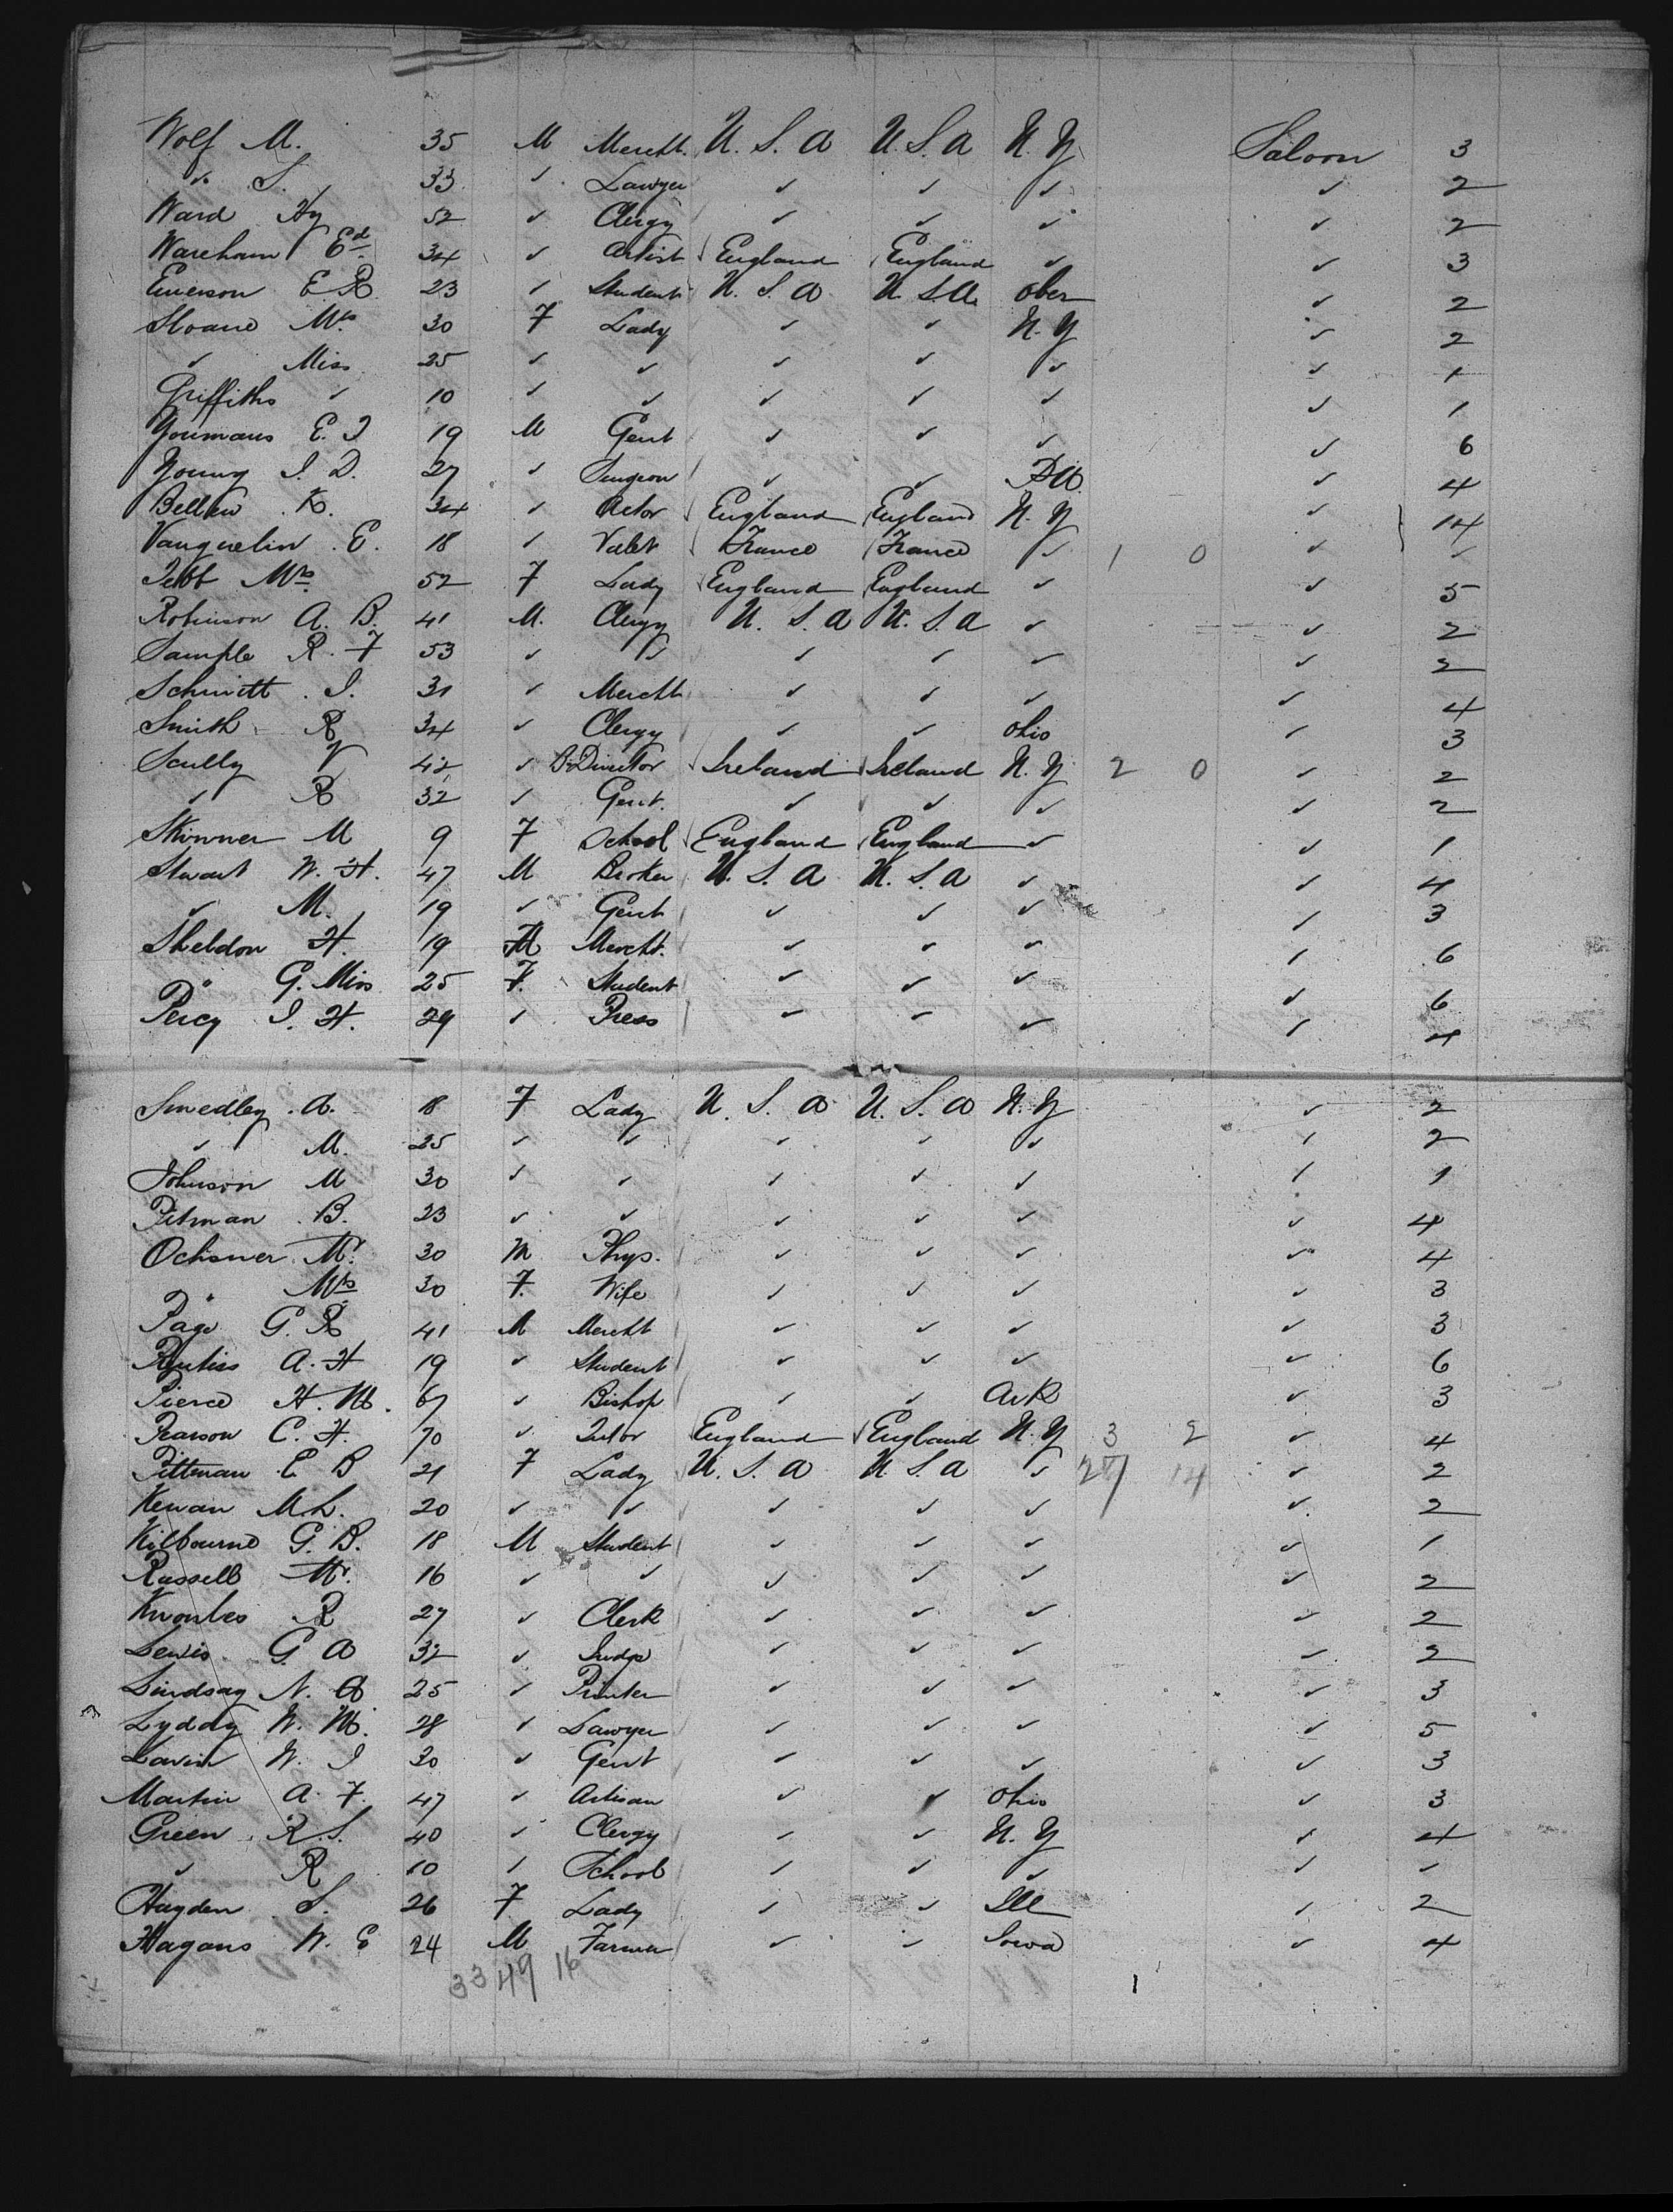 Wolf M. 35 M Mercht. U. S. A U. S. A N. Y Saloon 3
" S. 33 ✓ Lawyer ✓ ✓ ✓ ✓ 2
Ward Hy 52 ✓ Clergy ✓ ✓ ✓ ✓ 2
Wareham Ed 34 ✓ Artist England England ✓ ✓ 3
Emerson E R 23 ✓ Student U. S. A U. S. A ober ✓ 2
Sloane Mrs 30 F Lady ✓ ✓ N. Y ✓ 2
✓ Miss 25 ✓ ✓ ✓ ✓ ✓ ✓ 1
Griffiths ✓ 10 ✓ ✓ ✓ ✓ ✓ ✓ 1
Youmans E. J 19 M Gent ✓ ✓ ✓ ✓ 6
Young J. D. 27 ✓ Surgeon ✓ ✓ ✓ 4
Bellew K. 34 ✓ Actor England England N. Y ✓ 14
Vauquelin E. 18 ✓ Valet France France ✓ 1 0 ✓ ✓
Mrs 52 F Lady England England ✓ ✓ 5
Robinson A. B. 41 M. Clergy U. S. A U. S. A ✓ ✓ 2
Sample R. F 53 ✓ ✓ ✓ ✓ ✓ ✓ 2
Schmitt J. 31 ✓ Mercht ✓ ✓ ✓ ✓ 4
Smith R 34 ✓ Clergy ✓ ✓ Ohio ✓ 3
Scully V 42 ✓ B. Director Ireland Ireland N. Y 2 0 ✓ 2
✓ R 32 ✓ Gent. ✓ ✓ ✓ ✓ 2
Skinner M 9 F School England England ✓ ✓ 1
Stuart W. H. 47 M Broker U. S. A U. S. A ✓ ✓ 4
✓ M. 19 ✓ Gent ✓ ✓ ✓ ✓ 3
Sheldon H. 19 M Mercht. ✓ ✓ ✓ ✓ 6
" G. Miss 25 F. Student ✓ ✓ ✓ ✓ 6
Percy J. H. 29 ✓ Press ✓ ✓ ✓ ✓ 4
Smedley A. 18 F Lady U. S. A U. S. A N. Y ✓ 2
✓ M. 25 ✓ ✓ ✓ ✓ ✓ ✓ 2
Johnson M 30 ✓ ✓ ✓ ✓ ✓ ✓ 1
Pitman B. 23 ✓ ✓ ✓ ✓ ✓ ✓ 4
Ochsner Mr. 30 M Phys. ✓ ✓ ✓ ✓ 4
" Mrs 30 F. Wife ✓ ✓ ✓ ✓ 3
Page G. R 41 M Mercht ✓ ✓ ✓ ✓ 3
Prentiss A. H 19 ✓ Student ✓ ✓ ✓ ✓ 6
Pierce H. M. 67 ✓ Bishop ✓ ✓ Ark ✓ 3
Pearson C. H. 70 ✓ Tutor England England N. Y 3 2 ✓ 4
Pittman E B 21 F Lady U. S. A U. S. A ✓ 27 14 ✓ 2
Kenan M L. 20 ✓ ✓ ✓ ✓ ✓ ✓ 2
Kilbourne G. B. 18 M Student ✓ ✓ ✓ ✓ 1
Russell Mr. 16 ✓ ✓ ✓ ✓ ✓ ✓ 2
Knowles R 27 ✓ Clerk ✓ ✓ ✓ ✓ 2
Lewis G A 32 ✓ Judge ✓ ✓ ✓ ✓ 2
Lindsay N. A 25 ✓ Printer ✓ ✓ ✓ ✓ 3
Lyddy W. M. 28 ✓ Lawyer ✓ ✓ ✓ ✓ 5
Lavin W. J 30 ✓ Gent ✓ ✓ ✓ ✓ 3
Martin A. F. 47 ✓ Artisan ✓ ✓ Ohio ✓ 3
Green R. S. 40 ✓ Clergy ✓ ✓ N. Y ✓ 4
✓ R 10 ✓ School ✓ ✓ ✓ ✓ ✓
Hayden S. 26 F Lady ✓ ✓ Ill ✓ 2
Hagans W. E 24 M Farmer ✓ ✓ Iowa ✓ 4
33 49 16